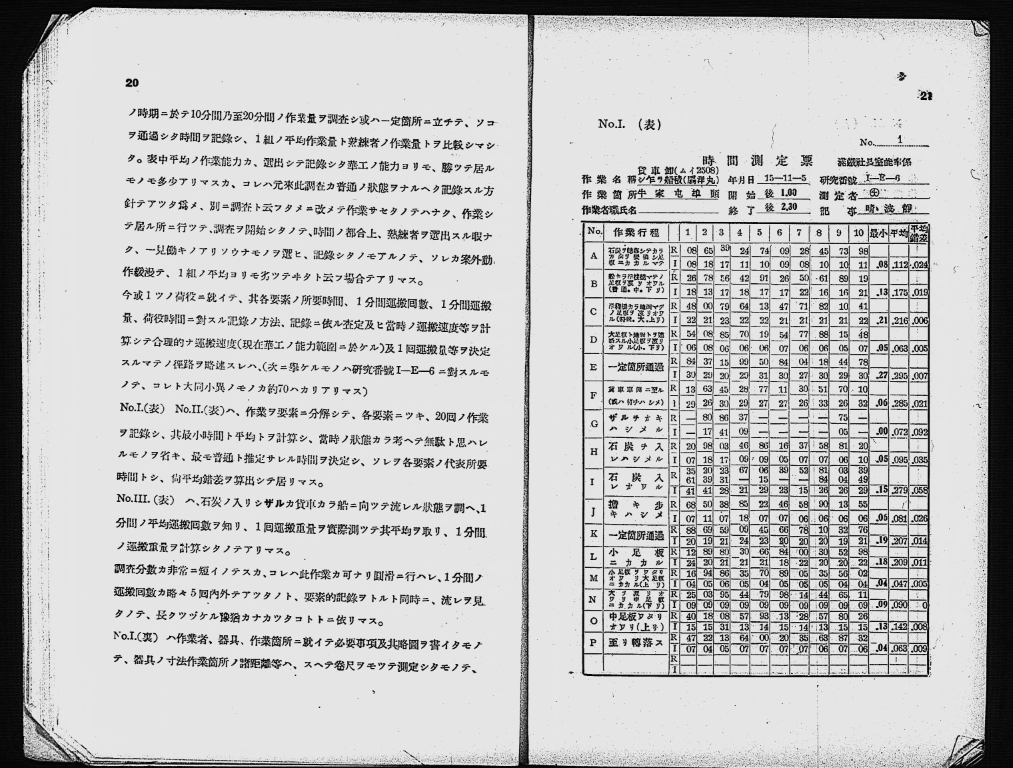 20
ノ時期ニ於テ10分間乃至20分間ノ作業量ヲ調査シ或ハ一定箇所ニ立チテ、ソコ
ヲ通過シタ時間ヲ記錄シ、1組ノ平均作業量ト熟練者ノ作業量トヲ比較シマシ
タ。表中平均ノ作業能力カ、選出シテ記錄シタ華工ノ能力ヨリモ、勝ツテ居ル
モノモ多少アリマスカ、コレハ元來此調査カ普通ノ狀態ヲナルヘク記錄スル方
針テアツタ爲メ、別ニ調査ト云フタメニ改メテ作業サセタノテハナク、作業シ
テ居ル所ニ行ツテ、調査ヲ開始シタノテ、時間ノ都合上、熟練者ヲ選出スル暇ナ
ク、一見働キノアリソウナモノヲ選ヒ、記錄シタノモアルノテ、ソレカ案外動
作緩漫テ、1組ノ平均ヨリモ劣ツテヰタト云フ場合テアリマス。
今或1ツノ荷役ニ就イテ、其各要素ノ所要時間、1分間運搬回數、1分間運搬
量、荷役時間ニ對スル記錄ノ方法、記錄ニ依ル査定及ヒ當時ノ運搬速度等ヲ計
算シテ合理的ナ運搬速度(現在華工ノ能力範圍ニ於ケル)及1回運搬量等ヲ決定
スルマテノ徑路ヲ略述スレハ、(次ニ擧ケルモノハ研究番號I—E—6ニ對スルモ
ノテ、コレト大同小異ノモノカ約70ハカリアリマス)
No.I.(表) No.II.(表)ハ、作業ヲ要素ニ分解シテ、各要素ニツキ、20回ノ作業
ヲ記錄シ、其最小時間ト平均トヲ計算シ、當時ノ狀態カラ考ヘテ無駄ト思ハレ
ルモノヲ省キ、最モ普通ト推定サレル時間ヲ決定シ、ソレヲ各要素ノ代表所要
時間トシ、尙平均錯差ヲ算出シテ居リマス。
No.III.(表) ハ、石炭ノ入リシザルカ貨車カラ船ニ向ツテ流レル狀態ヲ調ヘ、1
分間ノ平均運搬回數ヲ知リ、1回運搬重量ヲ實際測ツテ其平均ヲ取リ、1分間
ノ運搬重量ヲ計算シタノテアリマス。
調査分數カ非常ニ短イノテスカ、コレハ此作業カ可ナリ圓滑ニ行ハレ、1分間ノ
運搬回數カ略々5回内外テアツタノト、要素的記錄ヲトルト同時ニ、流レヲ見
タノテ、長クツヅケル餘裕カナカツタコトトニ依リマス。
No.I.(裏) ハ作業者、器具、作業箇所ニ就イテ必要事項及其略圖ヲ書イタモノ
テ、器具ノ寸法作業箇所ノ諸距離等ハ、スヘテ卷尺ヲモツテ測定シタモノテ、
21
No.I. (表)
No. 1
時間測定票
作業名稱 貨車卸(ムイ2508)
年月日 15—11—5 研究番號 I—E—6
作業箇所 牛家屯埠頭 開始 後 1.00 測定者
作業者職氏名 終了 後 2.30 記事 晴
No. 作業行程 1 2 3 4 5 6 7 8 9 10 最小 平均 平均錯差
A R 08 65 39 24 74 09 28 45 73 98
I 08 18 17 11 10 09 08 10 10 11 .08 .112 .024
B R 26 78 56 42 91 26 50 61 89 19
I 18 13 17 18 17 17 22 16 16 21 .13 .175 .019
C R 48 00 79 64 13 47 71 82 10 41
I 22 21 23 22 22 21 21 21 21 22 .21 .216 .006
D R 54 08 85 70 19 54 77 88 15 48
I 06 08 06 06 06 07 06 06 05 07 .05 .063 .005
E 一定箇所通過 R 84 37 15 99 50 84 04 18 44 78
I 30 29 20 29 31 30 27 30 29 30 .27 .295 .007
F R 13 63 45 28 77 11 30 51 70 10
I 29 26 30 29 27 27 26 33 26 32 .06 .285 .021
G ザルヲオキハシメル R — 80 86 37 — — — — 75 —
I — 17 41 09 — — — — 05 — .00 .072 .092
H 石炭ヲ入レハシメル R 20 98 03 46 86 16 37 58 81 20
I 07 18 17 09 09 05 07 07 06 10 .05 .095 .035
I 石炭入レナワル R 35 20 23 67 06 39 52 81 03 39
61 39 31 — 15 — — 84 04 49
I 41 41 28 21 29 23 15 26 26 29 .15 .279 .058
J 擔キ歩キハシメ R 68 50 38 85 22 46 58 90 13 55
I 07 11 07 18 07 07 06 06 06 06 .05 .081 .026
K 一定箇所通過 R 88 69 59 09 45 66 78 10 32 76
I 20 19 21 24 23 20 20 20 19 21 .19 .207 .014
L 小足板ニカカル R 12 89 80 30 66 84 00 30 52 98
I 24 20 21 21 21 18 22 20 20 22 .18 .209 .011
M R 16 94 86 35 70 89 05 35 56 02
I 04 05 06 05 04 05 05 05 04 04 .04 .047 .005
N R 25 03 95 44 79 98 14 44 65 11
I 09 09 09 09 09 09 09 09 09 09 .09 .090 0
O 中足板ワタリナワリ(上リ) R 40 18 08 57 93 13 28 57 80 26
I 15 15 31 13 14 15 14 13 15 15 .13 .142 .008
P 至リ轉落ス R 47 22 13 64 00 20 35 63 87 32
I 07 04 05 07 07 07 07 06 07 06 .04 .063 .009
R
I